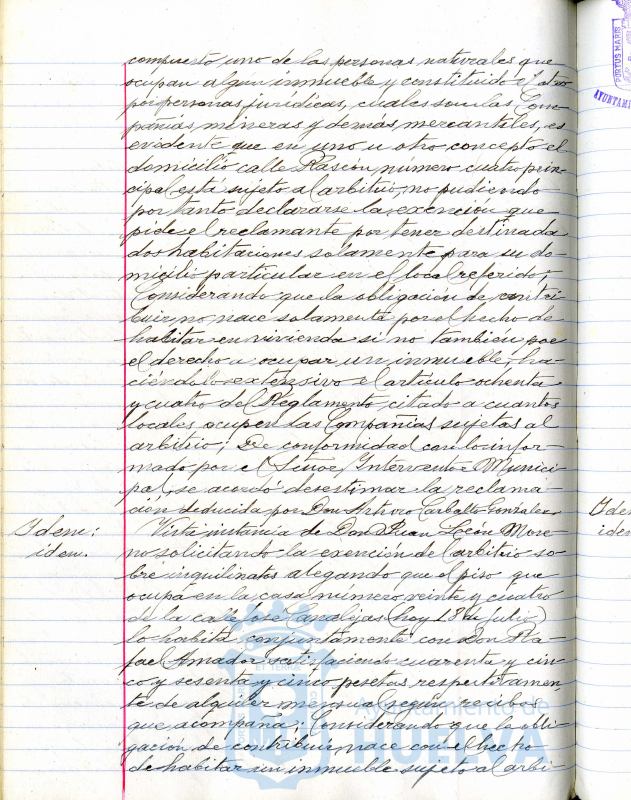 compuesto uno de las personas naturales que
ocupan algun inmueble y constituido el otro
por personas jurídicas, cuales son las Com-
pañias mineras y demás mercantiles, es
evidente que en uno u otro concepto el
domicilio calle Rascón, número cuatro prin-
cipal está sujeto al arbitrio, no pudiendo
por tanto declararse la exención que
pide el reclamante por tener destinada
dos habitaciones solamente para su do-
micilio particular en el local referido;
Considerando que la obligación de contri-
buir, no nace solamente por el hecho de
habitar en vivienda si no tambien por
el derecho a ocupar un inmueble, ha-
ciéndolo extensivo el artículo ochenta
y cuatro del Reglamento citado a cuantos
locales ocupen las Compañias sujetas al
arbitrio; De conformidad con lo infor-
mado por el Señor Interventor Munici-
pal, se acordó desestimar la reclama-
ción deducida por Don Arturo Carballo Gonzalez
Idem:
idem.
Vista instancia de Don Juan León More-
no solicitando la exención del arbitrio so-
bre inquilinatos alegando que el piso que
ocupa en la casa número veinte y cuatro
de la calle José Canalejas (hoy 18 de julio)
lo habita conjuntamente con Don Ra-
fael Amador satisfaciendo cuarenta y cin-
co y sesenta y cinco pesetas respectivamen-
te de alquiler mensual segun recibos
que acompaña; Considerando que la obli-
gación de contribuir, nace con el hecho
de habitar un inmueble sujeto al arbi-
PORTUS MARIS
AYUNTAMI
Ide
ide
Ayuntamiento de
HUELVA